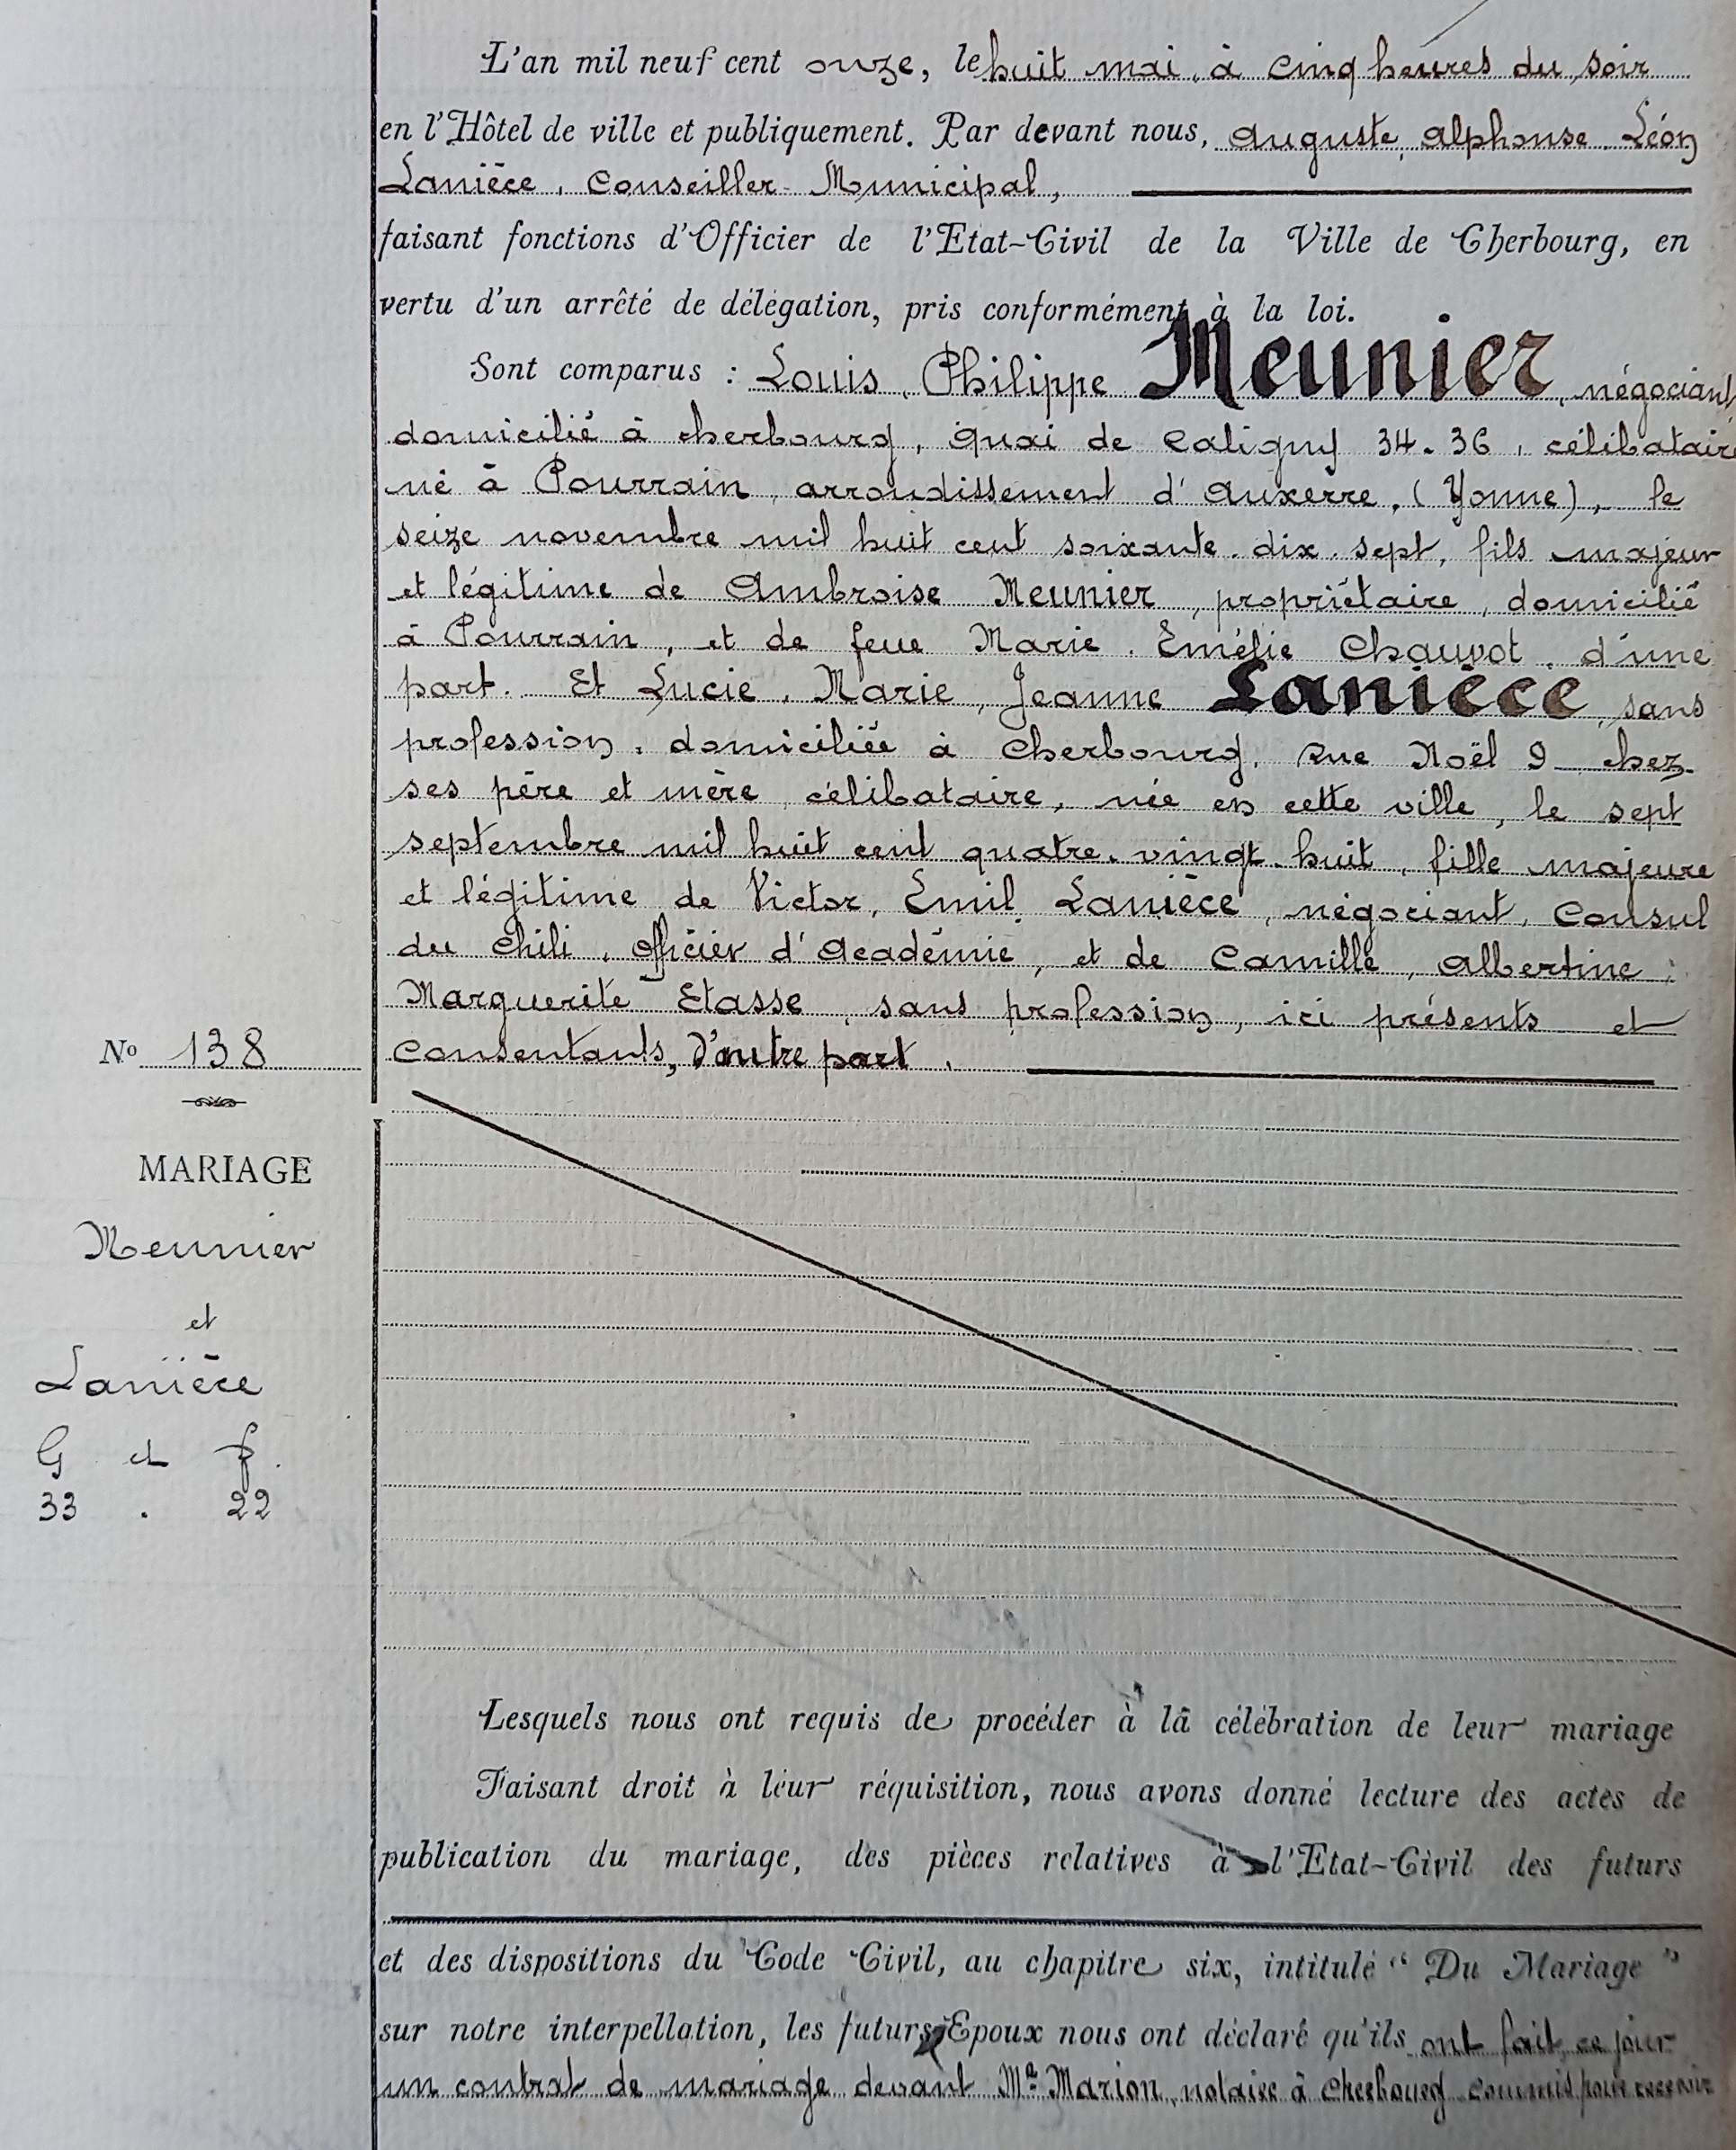 L'an mil neuf cent onze, le huit mai, à cinq heures du soir
en l'Hôtel de ville et publiquement. Par devant nous, Auguste, Alphonse, Léon
Lanièce, Conseiller Municipal,
faisant fonctions d'Officier de l'Etat-Civil de la Ville de Cherbourg, en
vertu d'un arrêté de délégation, pris conformément à la loi.
Sont comparus : Louis, Philippe Meunier, négociant,
domicilié à Cherbourg, Quai de Caligny 34-36, célibataire
né à Pourrain, arrondissement d'Auxerre, (Yonne), le
seize novembre mil huit cent soixante-dix-sept, fils majeur
et légitime de Ambroise Meunier, propriétaire, domicilié
à Pourrain, et de feue Marie, Emélie Chauvot, d'une
part. Et Lucie, Marie, Jeanne Lanièce, sans
profession, domiciliée à Cherbourg, Rue Noël 9 chez
ses père et mère, célibataire, née en cette ville, le sept
septembre mil huit cent quatre-vingt-huit, fille majeure
et légitime de Victor, Emil Lanièce, négociant, Consul
du Chili, Officier d'Académie, et de Camille, Albertine,
Marguerite Etasse, sans profession, ici présents et
consentants, d'autre part.
N° 138
MARIAGE
Meunier
et
Lanièce
G et f.
33 . 22
Lesquels nous ont requis de procéder à la célébration de leur mariage
Faisant droit à leur réquisition, nous avons donné lecture des actes de
publication du mariage, des pièces relatives à l'Etat-Civil des futurs
et des dispositions du Code Civil, au chapitre six, intitulé “ Du Mariage ”
sur notre interpellation, les futurs Epoux nous ont déclaré qu'ils ont fait, ce jour
un contrat de mariage devant Me Marion, notaire à Cherbourg commis pour recevoir